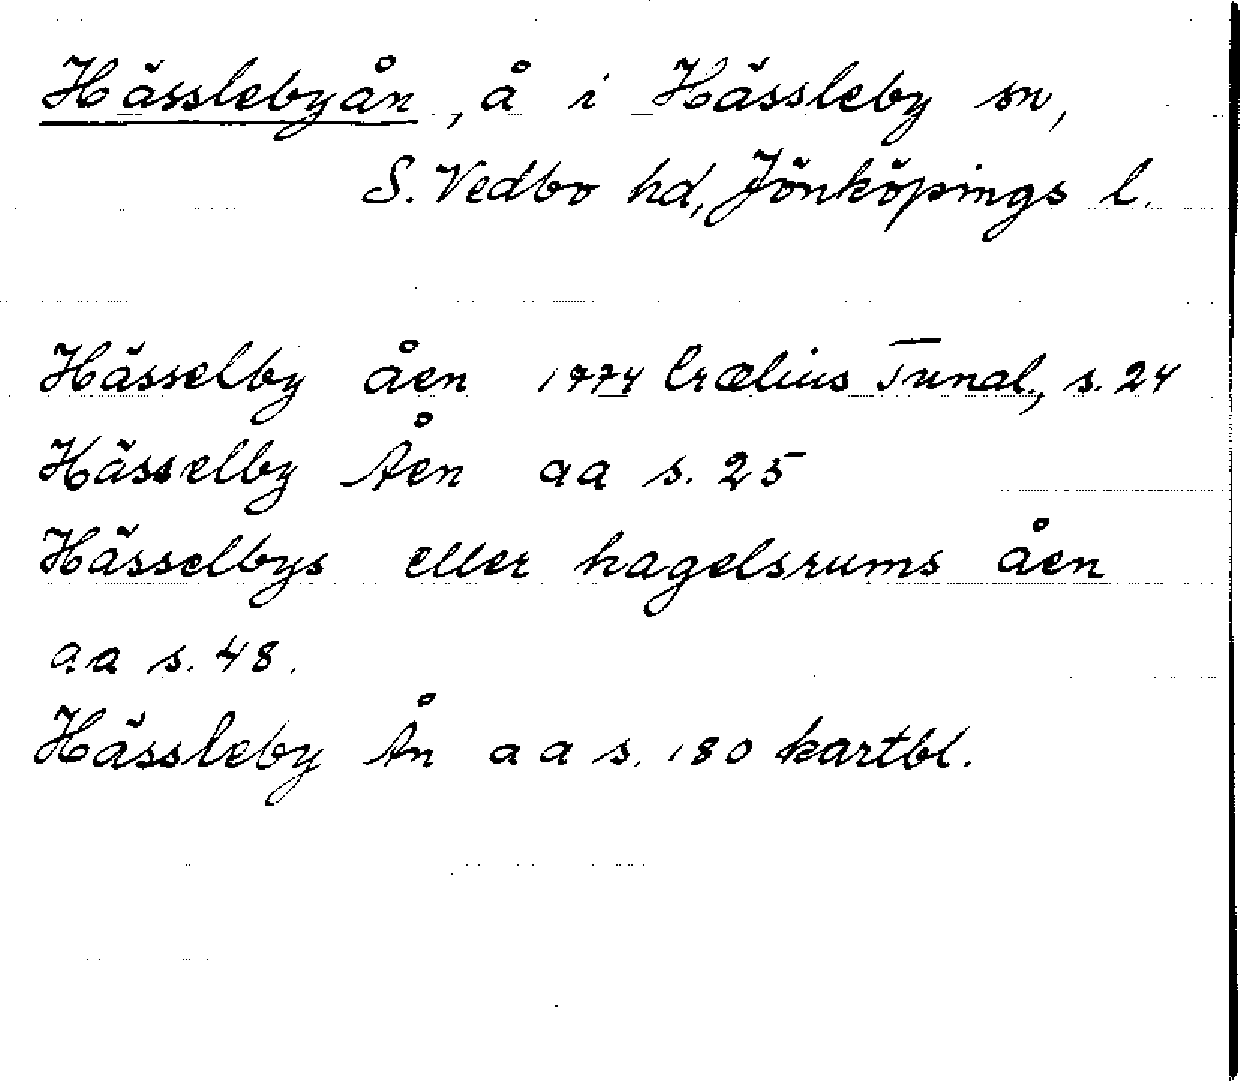 Hässlebyån, å i Hässleby sn,
S. Vedbo hd, Jönköpings l.
Hässelby åen 1774 Crælius Tunal., s. 24
Hässelby Åen aa s. 25
Hässelbys eller hagelsrums åen
aa s. 48.
Hässleby Ån aa s. 180 kartbl.